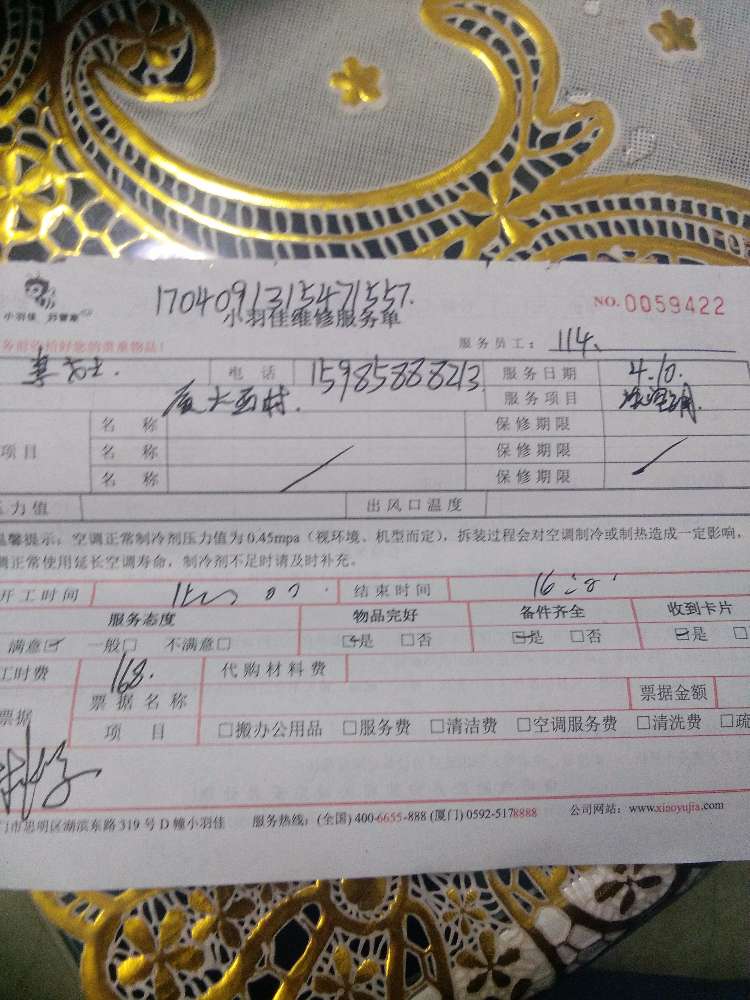 1704091315471557.
小羽佳 好管家
小羽佳维修服务单
NO.0059422
服务前收拾好您的贵重物品!
服务员工: 114.
电话 15985888213 服务日期 4.10.
厦大西村. 服务项目
名称 保修期限
项目 名称 保修期限
名称 保修期限
压力值 出风口温度
温馨提示: 空调正常制冷剂压力值为0.45mpa (视环境、机型而定), 拆装过程会对空调制冷或制热造成一定影响,
调正常使用延长空调寿命, 制冷剂不足时请及时补充。
开工时间 结束时间
服务态度 物品完好 备件齐全 收到卡片
满意☑ 一般□ 不满意□ ☑是 □否 ☑是 □否 ☑是 □
工时费 168. 代购材料费
票据 票据名称 票据金额
项目 □搬办公用品 □服务费 □清洁费 □空调服务费 □清洗费 □疏
门市思明区湖滨东路 319 号 D 幢小羽佳 服务热线: (全国) 400-6655-888 (厦门) 0592-5178888 公司网站: www.xiaoyujia.com